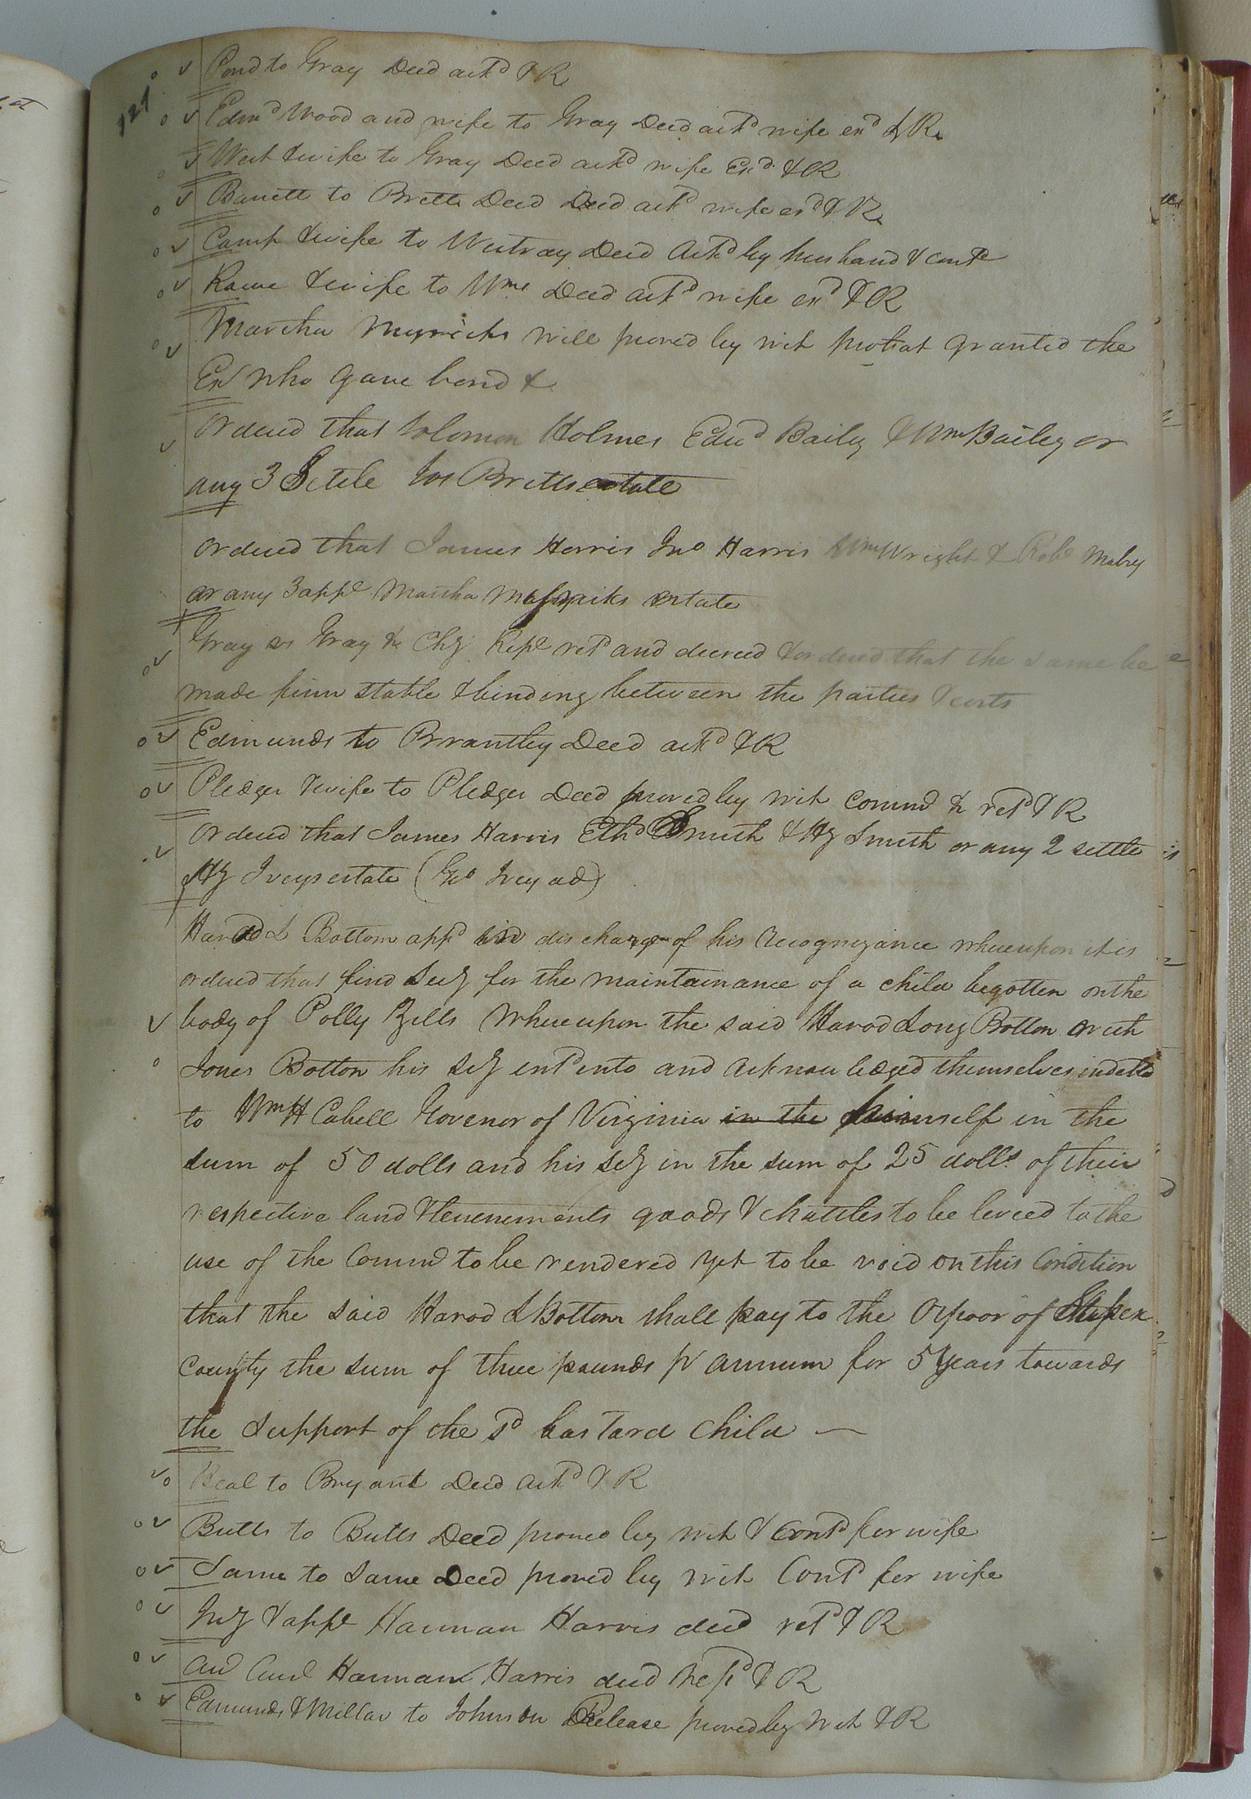 121
Pond to Gray Deed ack^d & R
Edm^d Wood and wife to Gray Deed ack^d wife ex^d & R
West & wife to Gray Deed ack^d wife Ex^d & R
Barrett to Britts Deed Deed ack^d wife ex^d & R
Camp & wife to Westray Deed Ack^d by husband & cont^d
Rowe & wife to W^ms Deed ack^d wife ex^d & R
Martha Myricks will proved by wit probat granted the
Ex^r who gave bond &
Ordered that Solomon Holmes Edw^d Baily & Wm Bailey or
any 3 Settle Jos Britts estate
Ordered that James Harris Jn^o Harris & Wm Wright & Rob^t Mabry
or any 3 app^e Martha Myricks estate
Gray vs Gray &c Ch^y Rep^t ret^d and decreed & ordered that the same be
made firm stable & binding between the parties & costs
Edmunds to Brantley Deed ack^d & R
Pledger & wife to Pledger Deed proved by wit comm^n & ret^d & R
Ordered that James Harris Eth^d Smith & Hy Smith or any 2 settle
Hy Iveys estate (Geo Ivey ad)
Harod L Bottom app^d in discharge of his Recognizance whereupon it is
ordered that find Secy for the maintainance of a child begotten on the
body of Polly Zills Whereupon the said Harod Long Botton with
Jones Botton his Secy ent^d into and acknowledged themselves indebted
to Wm H Cabell Govenor of Virginia in the himself in the
sum of 50 dolls and his Secy in the sum of 25 dolls of their
respective land & tenements goods & chattles to be levied to the
use of the Comm^d to be rendered yet to be void on this Condition
that the said Harod L Bottom shall pay to the O poor of
County the sum of three pounds p^r annum for 5 years towards
the Support of the s^d bastard child —
Beal to Bryant Deed ack^d & R
Butts to Butts Deed proved by wit & Cont^d for wife
Same to Same Deed proved by wit Cont^d for wife
Iny & app^e Harman Harris decd ret^d & R
Harman Harris decd ret^d & R
Edmunds & Millar to Johnson Release proved by wit & R